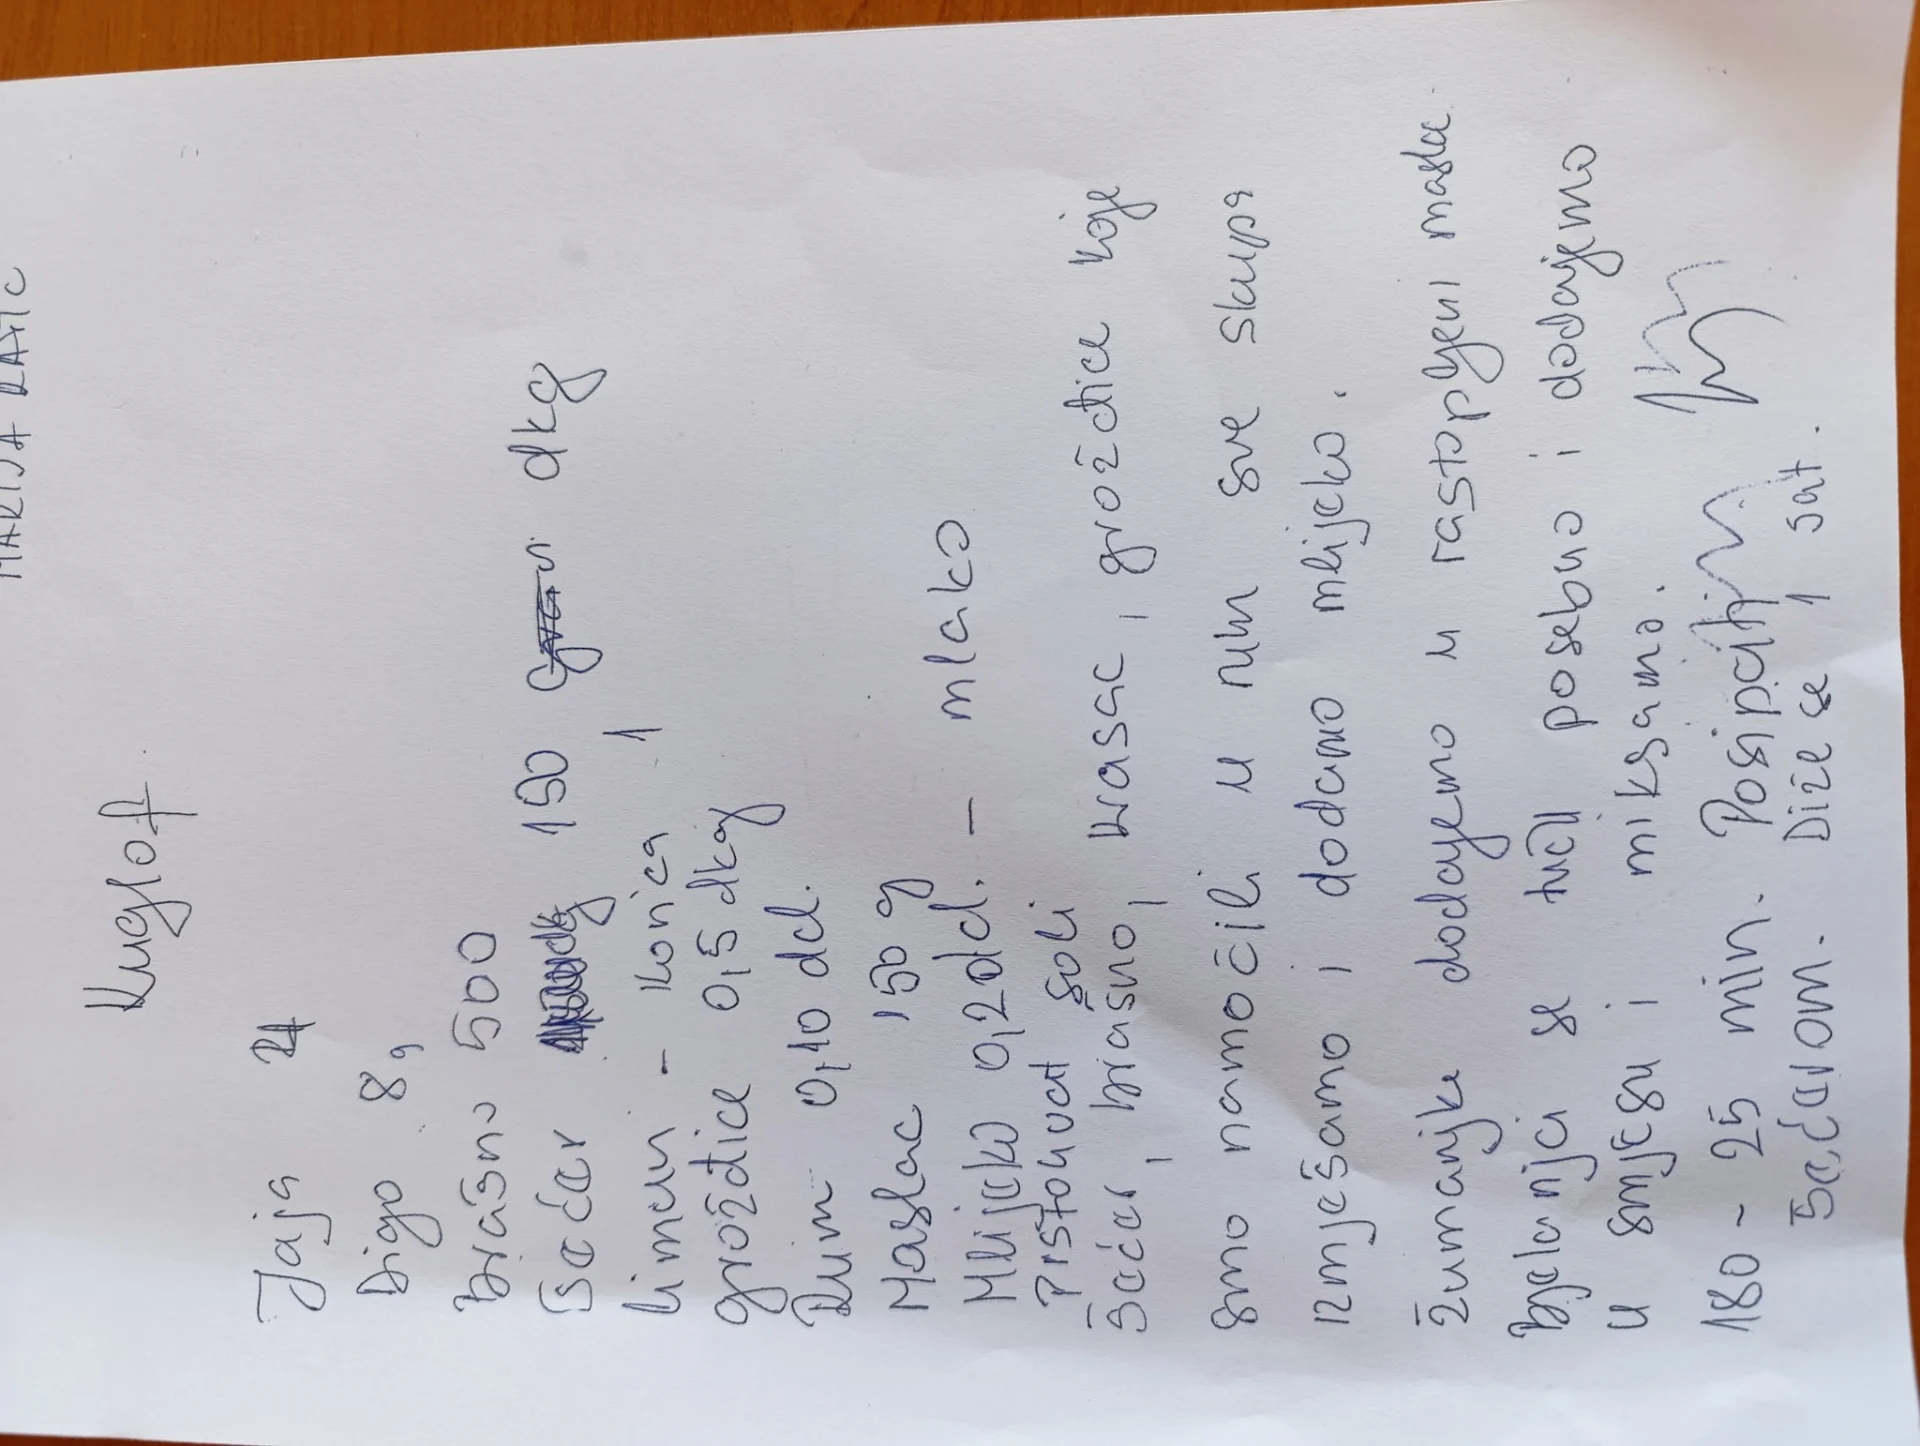 MARIJA RATIC
Kuglof
Jaja 4
Digo 8g
Brašno 500
Šećer 150 dkg
limun - korica 1
grožđice 0,5 dkg
Rum 0,10 dcl.
Maslac 150 g
Mlijeko 0,2 dcl. - mlako
Prstohvat soli
Šećer, brašno, kvasac, grožđice koje
smo namočili u rum sve skupa
izmješamo i dodamo mlijeko.
Žumanjke dodajemo u rastopljeni maslac
Bjelanjci se tuču posebno i dodajemo
u smjesu i miksamo.
180 - 25 min. Posipati
šećerom. Diže se 1 sat.